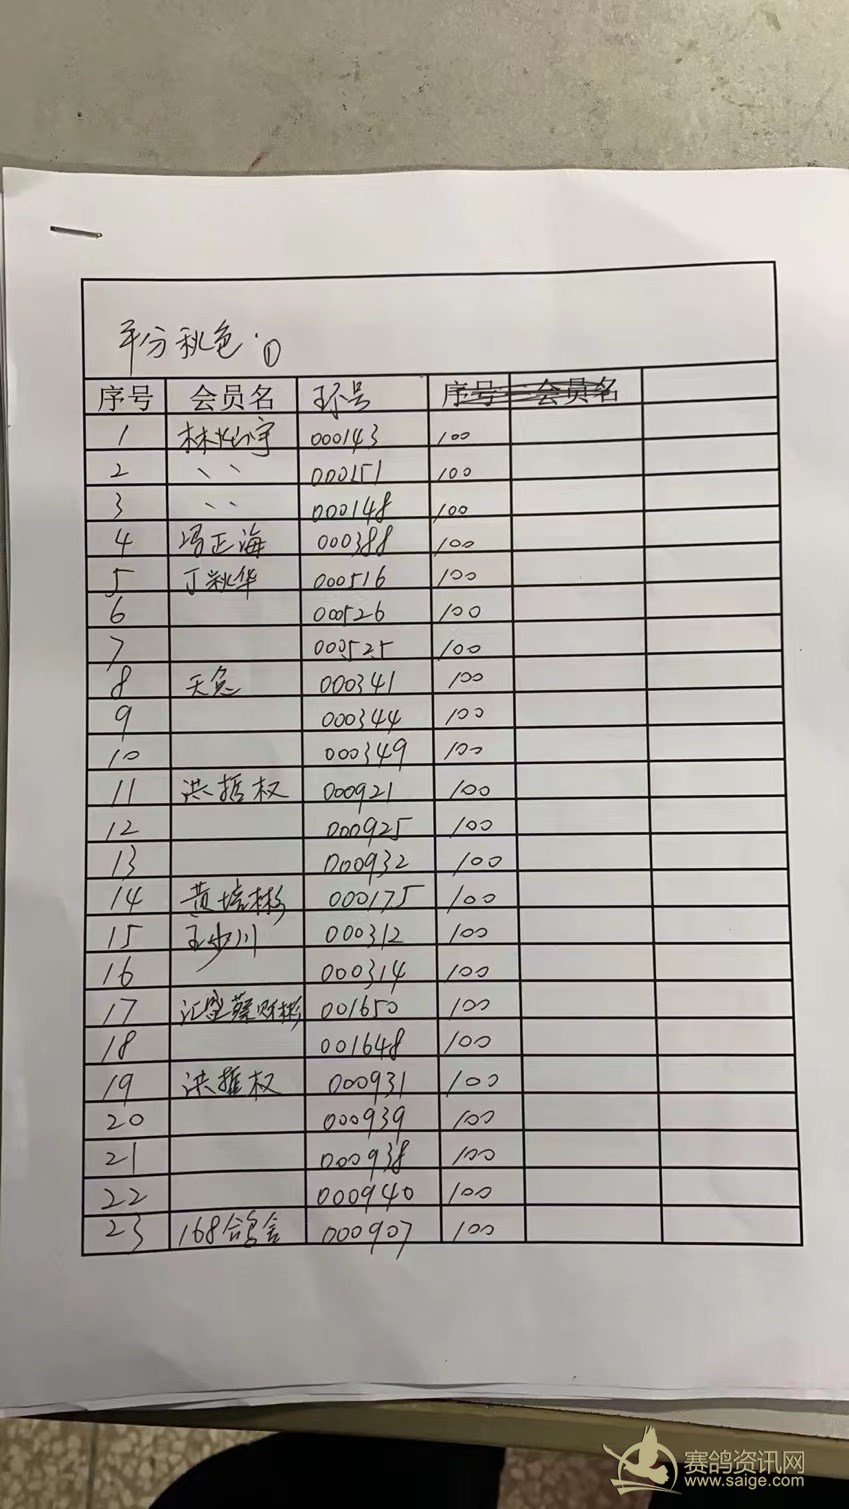 平分秋色·①
序号 会员名 环号 序号 会员名
1 林灿宇 000143 100
2 、、 000151 100
3 、、 000148 100
4 冯正海 000388 100
5 丁秋华 000516 100
6 000526 100
7 000525 100
8 000341 100
9 000344 100
10 000349 100
11 洪哲权 000921 100
12 000925 100
13 000932 100
14 黄培彬 000175 100
15 王少川 000312 100
16 000314 100
17 汇盛蔡财彬 001650 100
18 001648 100
19 洪哲权 000931 100
20 000939 100
21 000938 100
22 000940 100
23 168鸽舍 000907 100
赛鸽资讯网
www.saige.com